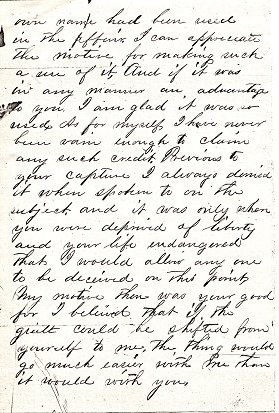 own name had been used
in the affair. I can appreciate
the motive for making such
a use of it And if it was
in any manner an advantage
to you I am glad it was so
used As for myself I have never
been vain enough to claim
any such credit Previous to
your capture I always denied
it when spoken to on the
subject and it was only when
you were deprived of liberty
and your life endangered
that I would allow any one
to be deceived on this point
My motive then was your good
for I believed that if the
guilt could be shifted from
yourself to me, the thing would
go much easier with me than
it would with you